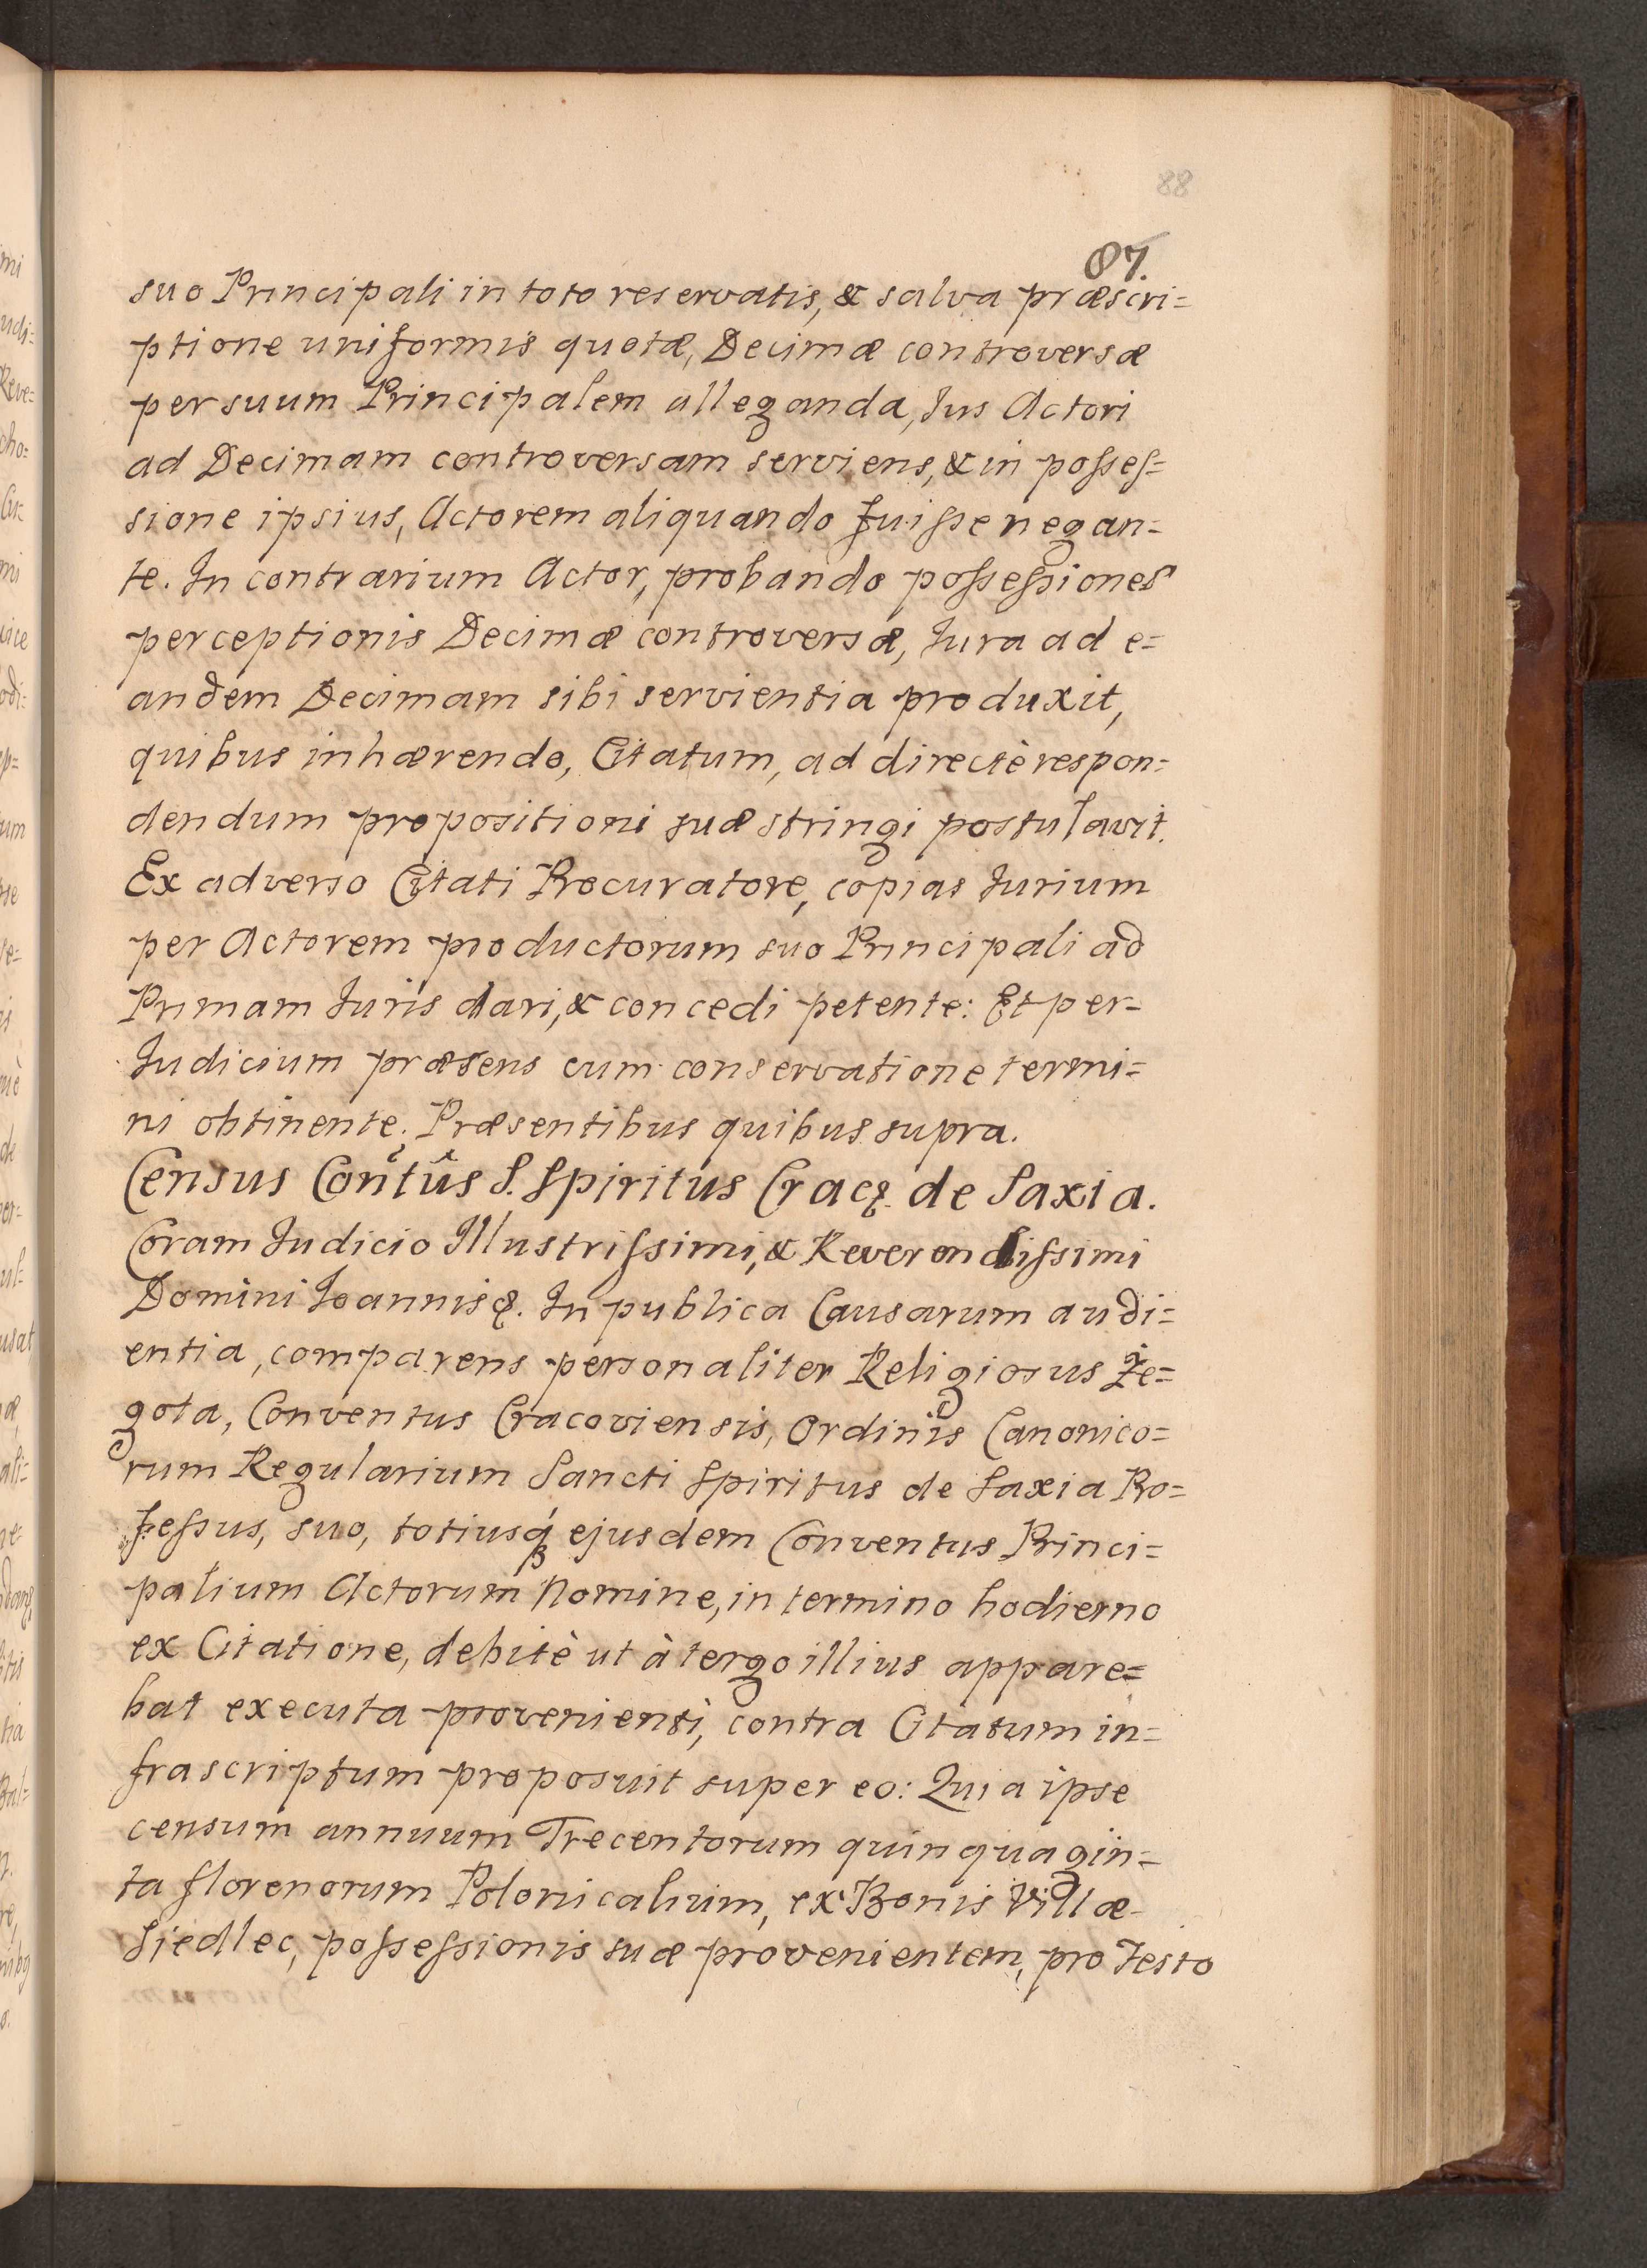 88
87.
suo Principali in toto reservatis, & salva præscri=
ptione uniformis quotæ, Decimæ controversæ
per suum Principalem alleganda, Jus Actori
ad Decimam controversam serviens, & in posses=
sione ipsius, Actorem aliquando fuisse negan=
te. In contrarium Actor, probando possessiones
perceptionis Decimæ controversæ, Jura ad e=
andem Decimam sibi servientia produxit,
quibus inhærendo, Citatum, ad directè respon=
dendum propositioni suæ stringi postulavit.
Ex adverso Citati Procuratore, copias Jurium
per Actorem productorum suo Principali ad
Primam Juris dari, & concedi petente: Et per
Judicium præsens cum conservatione termi=
ni obtinente. Præsentibus quibus supra.
Census Con̄tūs S. Spiritus Crac̨. de Saxia.
Coram Judicio Illustrissimi, & Reverendissimi
Domini Joannis &. In publica Causarum audi=
entia, comparens personaliter Religiosus Że=
gota, Conventus Cracoviensis, Ordinis Canonico=
rum Regularium Sancti Spiritus de Saxia Pro=
fessus, suo, totiusq́ ejusdem Conventus Princi=
palium Actorum Nomine, in termino hodierno
ex Citatione, debitè ut à tergo illius appare=
bat executa provenienti, contra Citatum in=
frascriptum proposuit super eo: Quia ipse
censum annuum Trecentorum quinquagin=
ta florenorum Polonicalium, ex Bonis Villæ
Siedlec, possessionis suæ provenientem, pro Festo